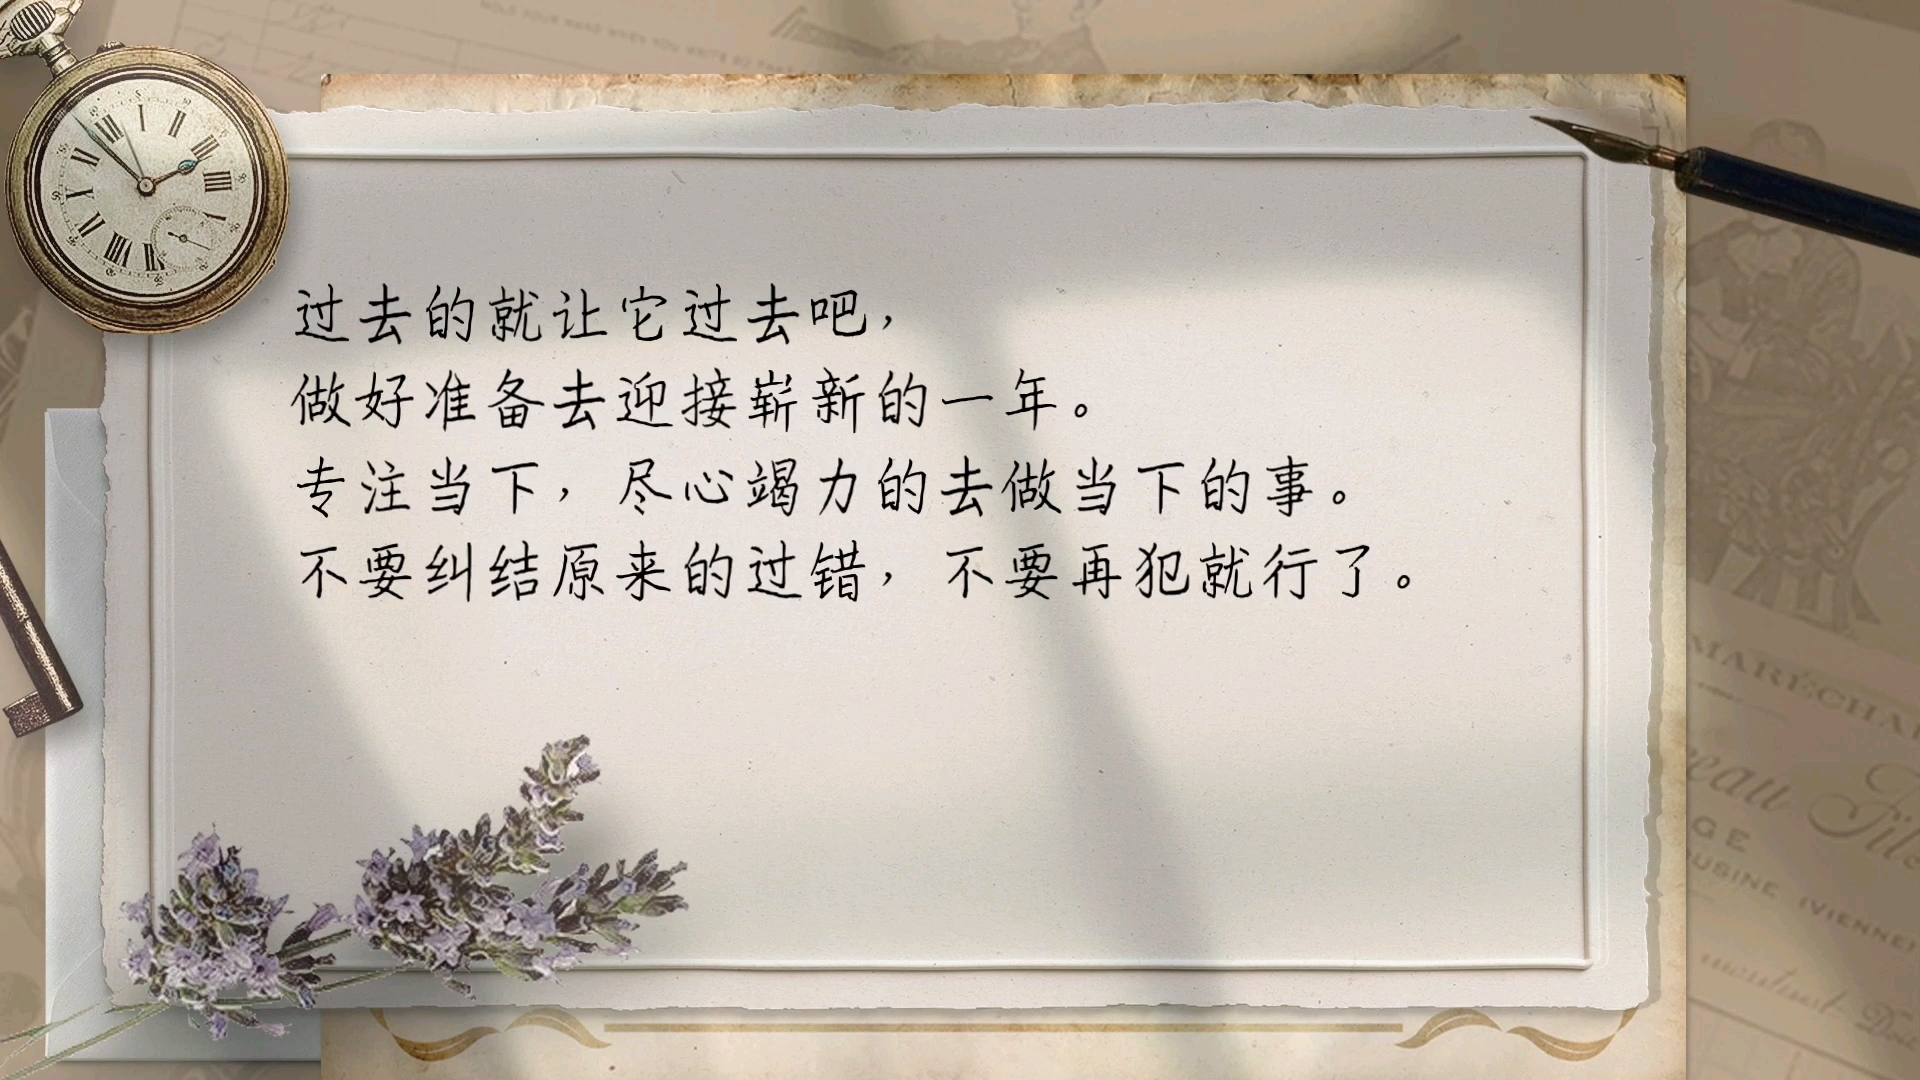 过去的就让它过去吧，
做好准备去迎接崭新的一年。
专注当下，尽心竭力的去做当下的事。
不要纠结原来的过错，不要再犯就行了。
MARECHA
eau Fil
GE
OUSINE (VIENNE)